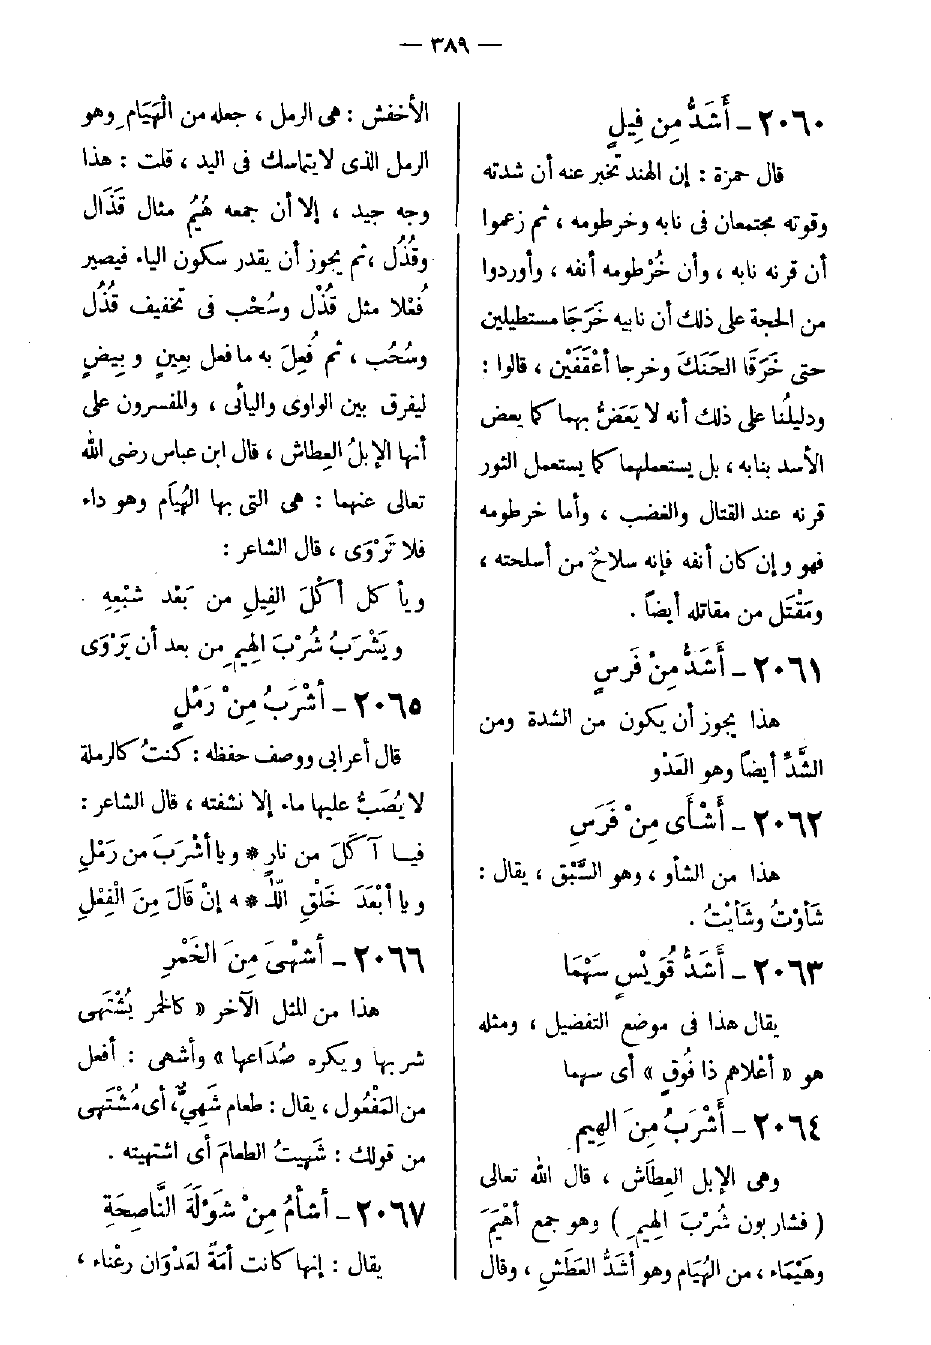 — ٣٨٩ —
٢٠٦٠ – أَشَدُّ مِن فِيلٍ
قال حمزة : إن الهند تخبر عنه أن شدته
وقوته مجتمعان فى نابه وخرطومه ، ثم زعموا
أن قرنه نابه ، وأن خُرْطومه أنفه ، وأوردوا
من الحجة على ذلك أن نابيه خَرَجَا مستطيلين
حتى خَرَقَا الحَنَكَ وخرجا أعْقَفَيْن ، قالوا :
ودليلُنا على ذلك أنه لا يَعَضُّ بهما كما يعض
الأسد بنابه ، بل يستعملهما كما يستعمل الثور
قرنه عند القتال والغضب ، وأما خرطومه
فهو وإن كان أنفه فإنه سلاحٌ من أسلحته ،
ومَقْتَل من مقاتله أيضاً .
٢٠٦١ – أَشَدُّ مِنْ فَرَسٍ
هذا يجوز أن يكون من الشدة ومن
الشَّدِّ أيضاً وهو العَدْو
٢٠٦٢ – أَشْأَى مِنْ فَرَسٍ
هذا من الشأو ، وهو السَّبْق ، يقال :
شَأَوْتُ وشَأيْتُ .
٢٠٦٣ – أَشَدُّ قُوَيْسٍ سَهْمَا
يقال هذا فى موضع التفضيل ، ومثله
هو « أعْلاهم ذا فُوقٍ » أى سهما
٢٠٦٤ – أَشْرَبُ مِنَ الهِيمِ
وهى الإبل العِطَاش ، قال الله تعالى
( فشاربون شُرْبَ الهِيمِ ) وهو جمع أهْيَمَ
وهَيْمَاء ، من الهُيَام وهو أشَدُّ العَطَشِ ، وقال
الأخفش : هى الرمل ، جعله من الْهَيَامِ وهو
الرمل الذى لا يتماسك فى اليد ، قلت : هذا
وجه جيد ، إلا أن جمعه هُيُم مثال قَذَال
وقُذُل ، ثم يجوز أن يقدر سكون الياء فيصير
فُعْلا مثل قُذْل وسُحْب فى تخفيف قُذُل
وسُحُب ، ثم فُعِلَ به ما فعل بِعِينٍ وبِيضٍ
ليفرق بين الواوى واليائى ، والمفسرون على
أنها الإبلُ العِطاش ، قال ابن عباس رضى الله
تعالى عنهما : هى التى بها الهُيَام وهو داء
فلا تَرْوَى ، قال الشاعر :
ويأكل أكْلَ الفِيلِ من بَعْد شبْعِهِ
ويَشْرَبُ شُرْبَ الهِيمِ من بعد أن يَرْوَى
٢٠٦٥ – أَشْرَبُ مِنْ رَمْلٍ
قال أعرابى ووصف حفظه : كنتُ كالرملة
لا يُصَبُّ عليها ماء إلا نشفته ، قال الشاعر :
فيا آكَلَ من نارٍ * ويا أشْرَبَ من رَمْلِ
ويا أبْعَدَ خَلْقِ اللّـ * ـه إنْ قَالَ مِنَ الْفِعْلِ
٢٠٦٦ – أَشْهَى مِنَ الخَمْرِ
هذا من المثل الآخر « كالخمر يُشْتَهَى
شربها ويكره صُدَاعها » وأشهى : أفعل
من المَفْعُول ، يقال : طعام شَهِيٌّ، أى مُشْتَهَى
من قولك : شَهِيتُ الطعامَ أى اشتهيته .
٢٠٦٧ – أَشأَمُ مِنْ شَوْلَةَ النَّاصِحَةِ
يقال : إنها كانت أمَةً لعَدْوَان رعْناء ،